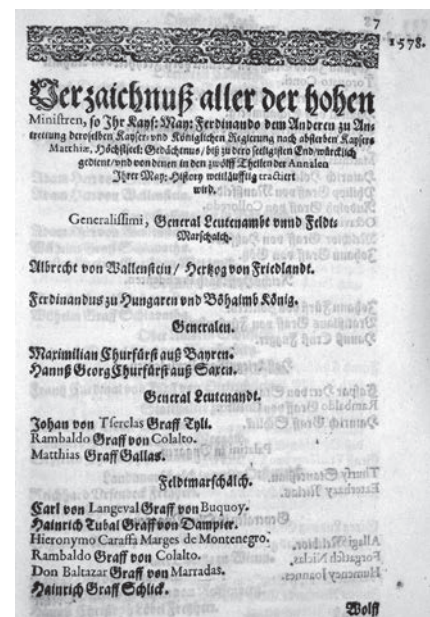 7
1578.
Verzaichnuß aller der hohen
Ministren, so Ihr Kays: May: Ferdinando dem Anderen zu An-
trettung deroselben Kayser- vnd Königlichen Regierung nach absterben Kaysers
Matthiæ, Höchstseel: Gedächtnus / biß zu dero seeligisten End / würcklich
gedient / vnd von denen in den zwölff Theilen der Annalen
Ihrer May: History weitläufftig tractiert
wird.
Generalissimi, General Leutenambt vnnd Feldt-
Marschalch.
Albrecht von Wallenstein / Hertzog von Friedlandt.
Ferdinandus zu Hungaren vnd Böhaimb König.
Generalen.
Maximilian Churfürst auß Bayren.
Hannß Georg Churfürst auß Saxen.
General Leutenandt.
Johan von Tserclas Graff Tyli.
Rambaldo Graff von Colalto.
Matthias Graff Gallas.
Feldtmarschälch.
Carl von Langeval Graff von Buquoy.
Hainrich Tubal Graff von Dampier.
Hieronymo Caraffa Marges de Montenegro.
Rambaldo Graff von Colalto.
Don Baltazar Graff von Marradas.
Hainrich Graff Schlick.
Wolff